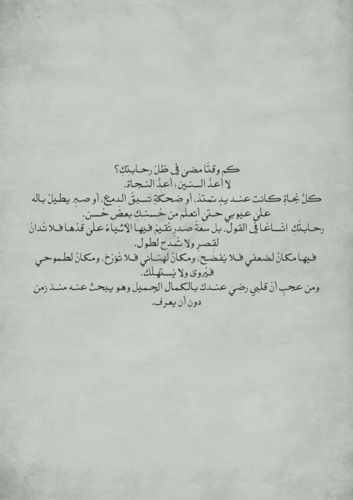 كم وقتًا مضى في ظلّ رحابتك؟
لا أعدُّ السنين؛ أعدُّ النجاة.
كلُّ نجاةٍ كانت عند يدٍ تمتدّ، أو ضحكةٍ تَسبقُ الدمع، أو صبرٍ يطيلُ باله
على عيوبي حتى أتعلّمَ من حُسنكِ بعضَ حُسن.
رحابتُكِ اتّساعًا في القول، بل سعةُ صدرٍ تقيمُ فيها الأشياءُ على قدّها فلا تُدانُ
لقصرٍ ولا تُمدحُ لطول.
فيها مكانٌ لضعفي فلا يُفضَح، ومكانٌ لهناتي فلا تُؤرَّخ، ومكانٌ لطموحي
فيُروى ولا يُستهلَك.
ومن عجبٍ أنّ قلبي رضيَ عندكِ بالكمال الجميل وهو يبحثُ عنه منذ زمن
دون أن يعرف.